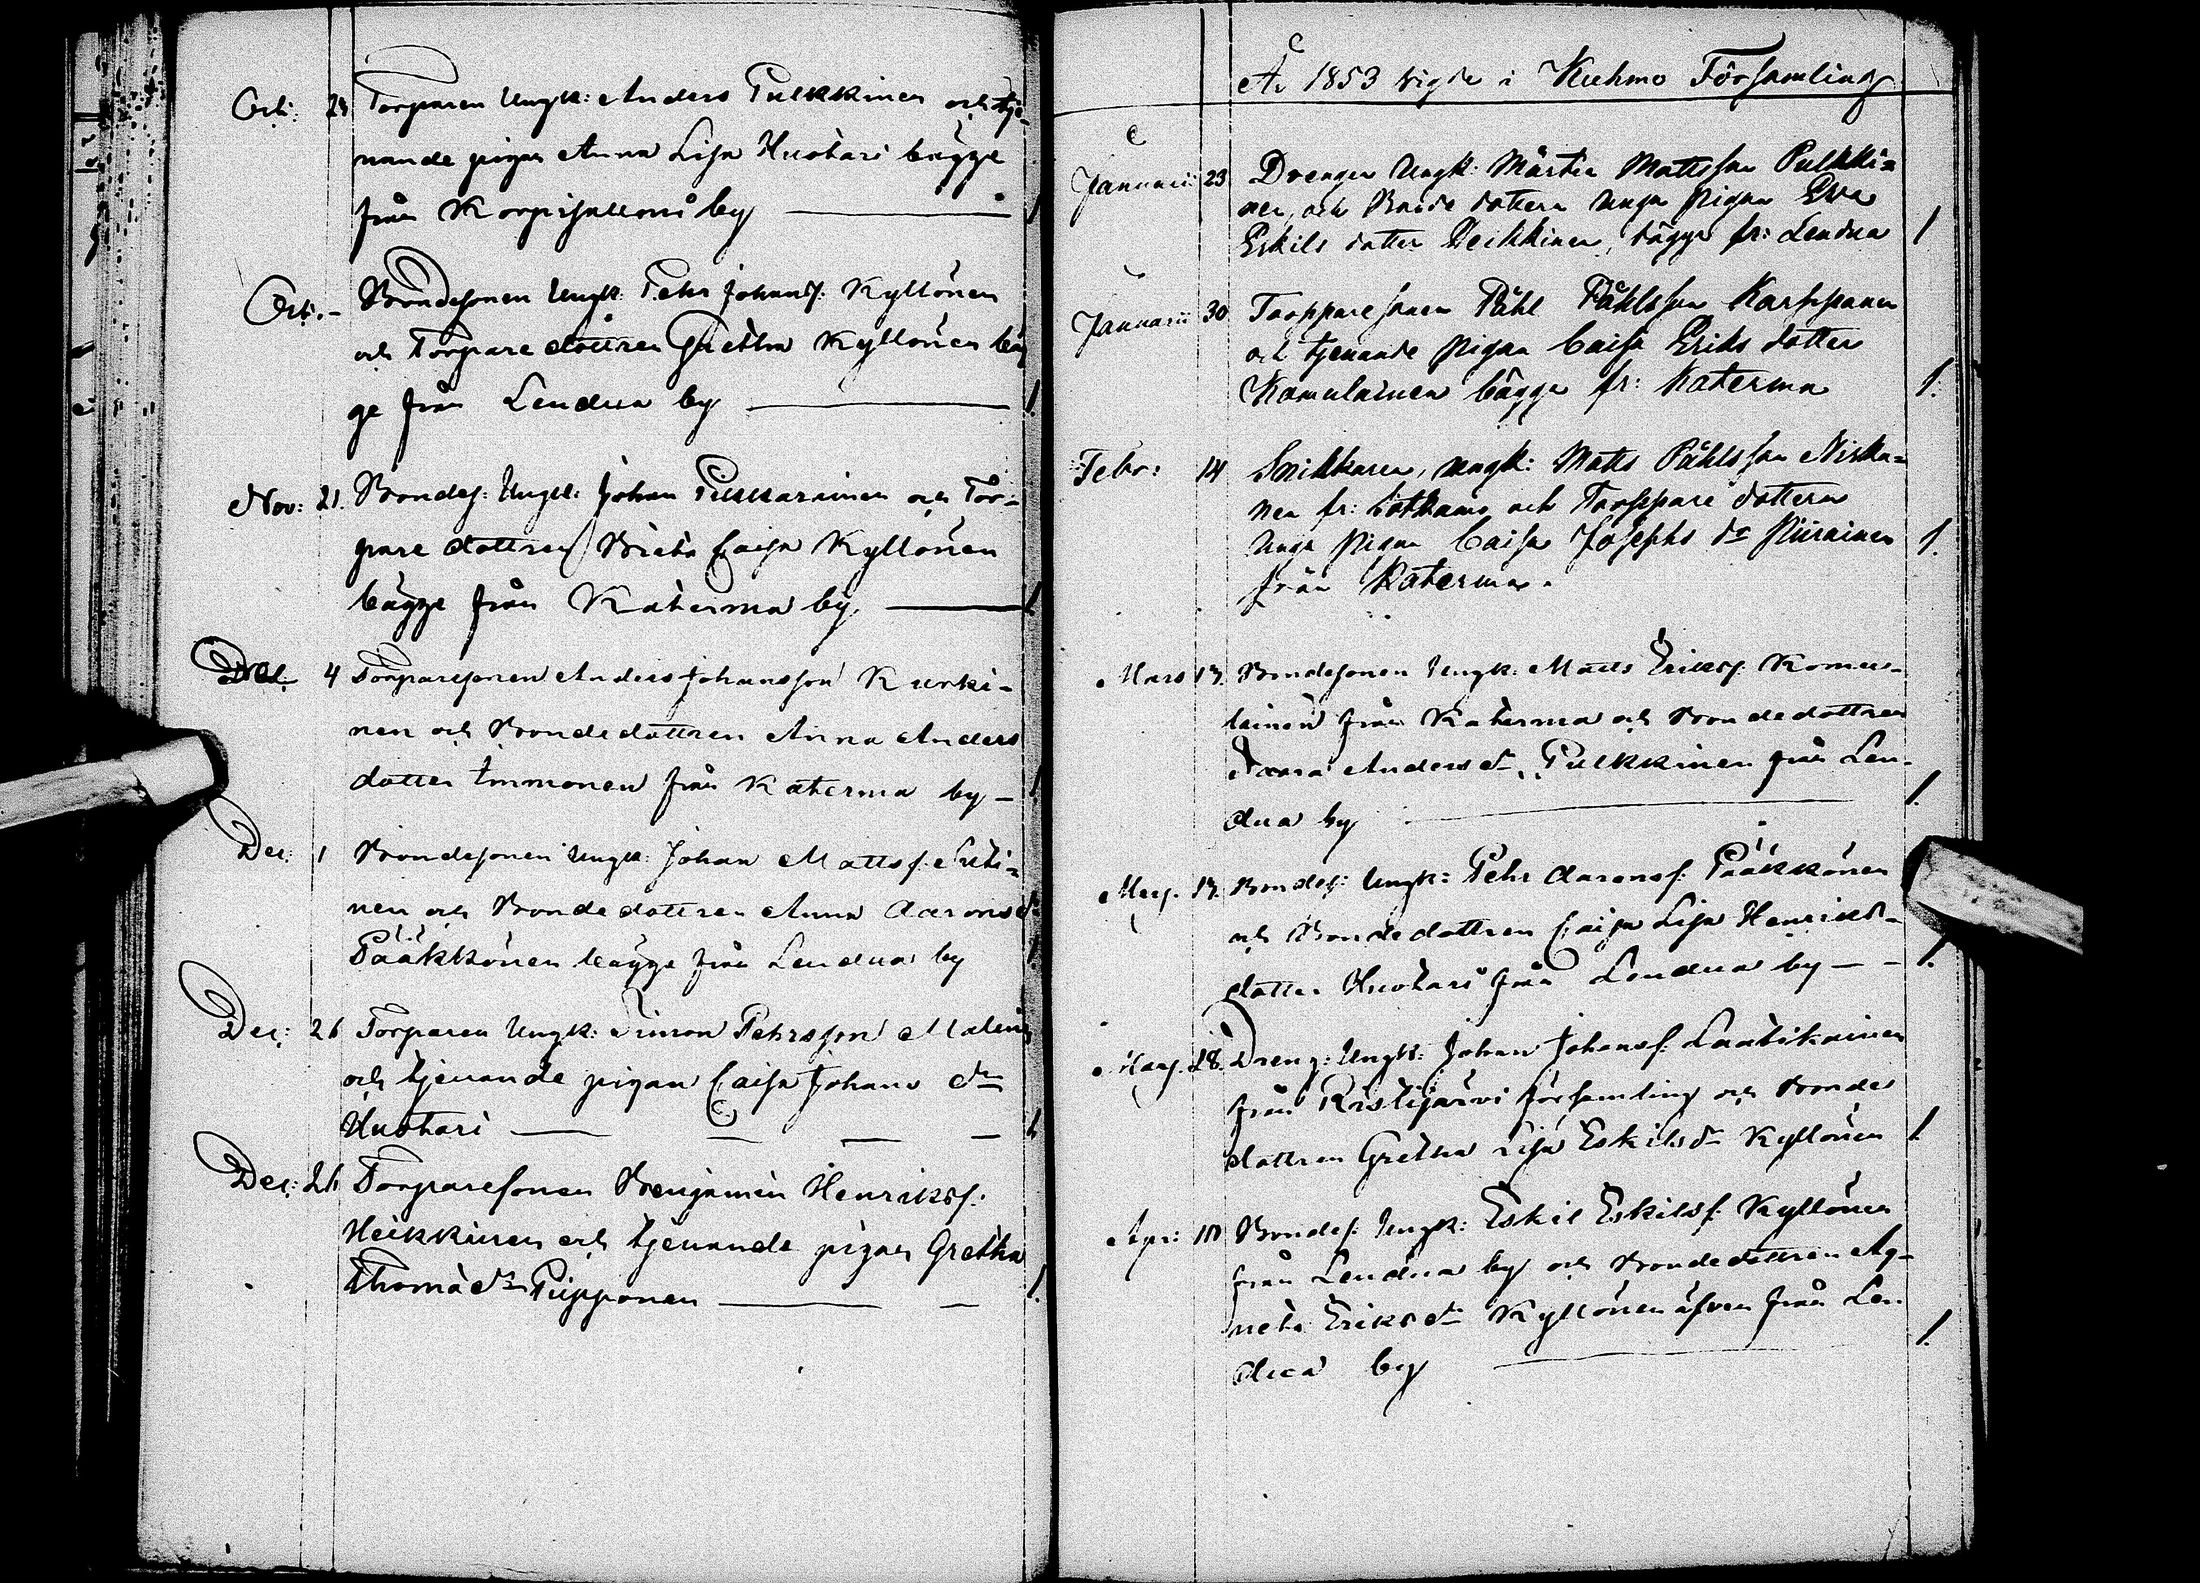 Oct: 24 Torparen Ungk: Anders Pulkkinen och tje-
nande pigan Anna Lisa Huotari bägge
från Korpisalloni by — 1
Oct. - Bondesonen Ungk. Pehr Johans. Kyllönen
och Torpare dottren Gretha Kyllönen bäg
ge från Lendua by — 1.
Nov: 21. Bondes: Ungk: Johan Pikkarainen och Tor-
pare dottren Brita Caisa Kyllönen
bägge från Katerma by. — 1
Dec. 4 Torparesonen Anders Johansson Kurki-
nen och Bondedottren Anna Anders
dotter Immonen från Katerma by — 1
Dec: 1 Bondesonen Ungk: Johan Mattss.
nen och Bondedottren Anna Aaronsdr
Pääkkönen bägge från Lendua by 1
Dec: 26 Torparen Ungk: Simon Pehrsson
och tjenande pigan Caisa Johans dr
Huotari — — — — 1
Dec: 26 Torparesonen Benjamin Henrikss:
Heikkinen och tjenande pigan Gretha
Thomædr Piipponen — — 1.
År 1853 vigde i Kuhmo Församling
Januarii 23 Drengen Ungk: Mårten Mattsson Pulkki=
nen, och Bonde dottern unga pigan Eva
Eskils dotter Heikkinen, bägge fr: Lendua 1
Januarii 30 Torppare sonen Påhl Påhlsson Karppanen
och tjenande pigan Caisa Eriks dotter
Komulainen bägge fr: Katerma 1.
Febr: 14 Snikkaren, ungk: Matts Påhlsson Niska=
nen fr: Sotkamo och Torppare dottern
unga pigan Caisa Josephs dr Piirainen 1.
från Katerma.
Mars 13. Bondesonen Ungk: Matts Erikss. Komu-
lainen från Katerma och Bondedottren
Anders dr. Pulkkinen från Len-
dua by — 1.
Mars. 13. Bondes: Ungk: Pehr Aaronss: Pääkkönen
och Bondedottren Caisa Lisa Henriks-
dotter Huotari från Lendua by — - 1.
Mars. 28. Dreng: Ungk: Johan Johanss: Laatikainen
från Ristijärvi församling och Bonde
dottren Gretha Lisa Eskilsdr Kyllönen 1
Apr: 10 Bondes: Ungk: Eskil Eskilss: Kyllönen
från Lendua by och Bondedottren Ag-
neta Eriksdr Kyllönen äfven från Len
dua by — 1.